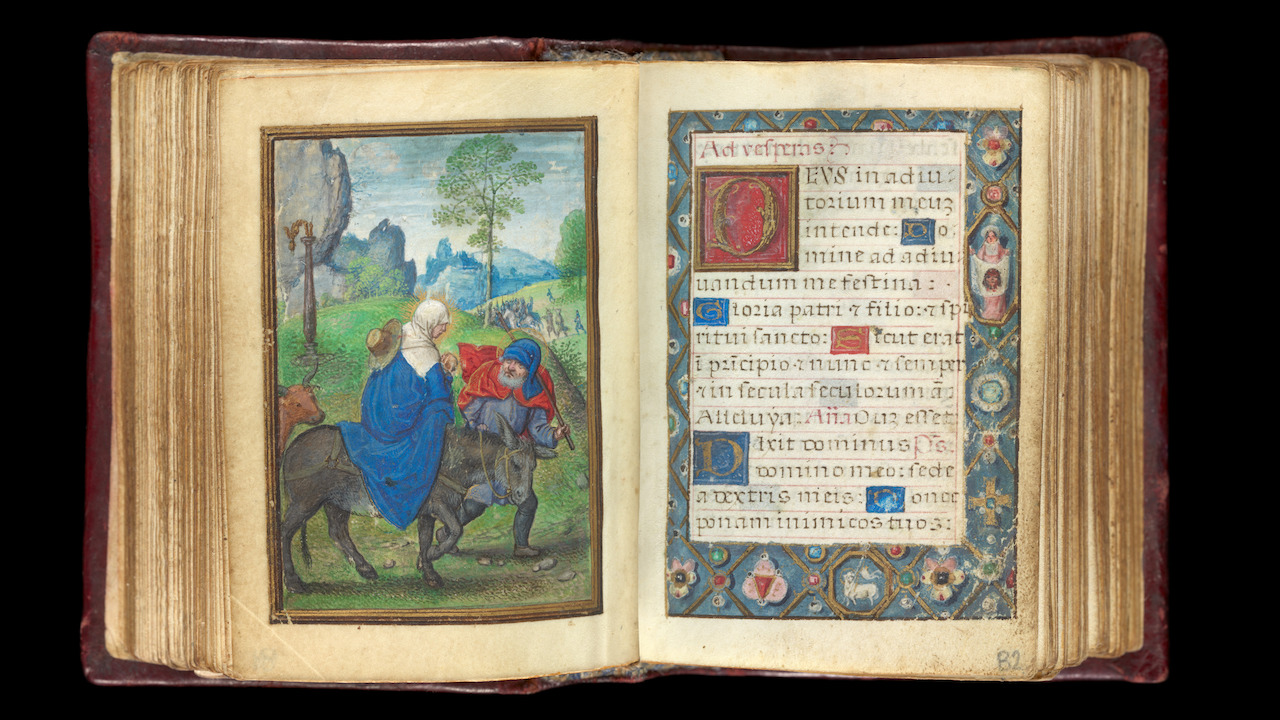 Ad vesperas:
DEVS in adiu
torium meuz
intende: Do
mine ad adiu
uandum me festina:
Gloria patri ⁊ filio: ⁊ spi
ritui sancto: Sicut erat
i prĩcipio ⁊ nunc ⁊ semper
⁊ in secula seculorum am̃
Alleluya: Aña Duz esset
Dixit dominus Ps.
domino meo: sede
a dextris meis: Donec
ponam inimicos tuos:
82